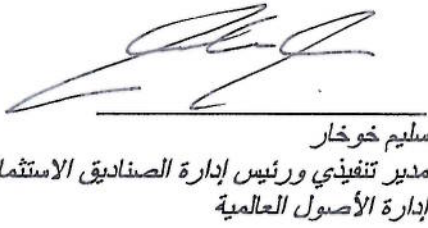 سليم خوخار
مدير تنفيذي ورئيس إدارة الصناديق
إدارة الأصول العالمية